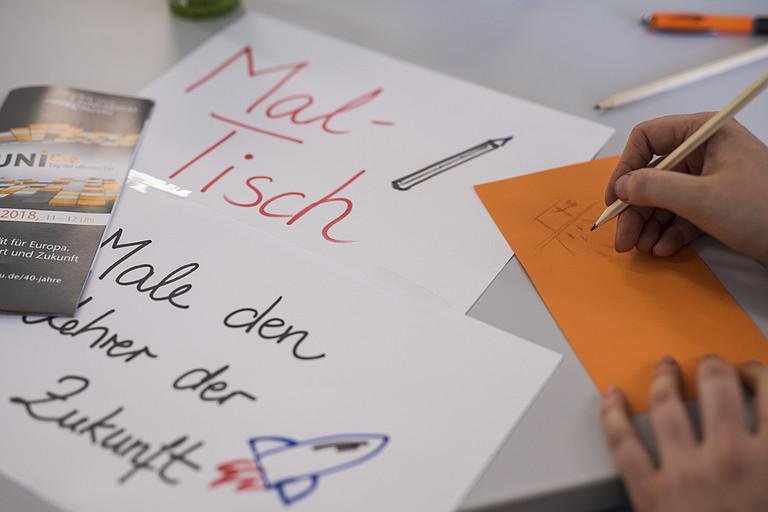 Mal-
Tisch
UNI
Tag der offenen Tür
2018, 11 – 17 Uhr
ät für Europa.
rt und Zukunft
u.de/40-jahre
Male den
Lehrer der
Zukunft